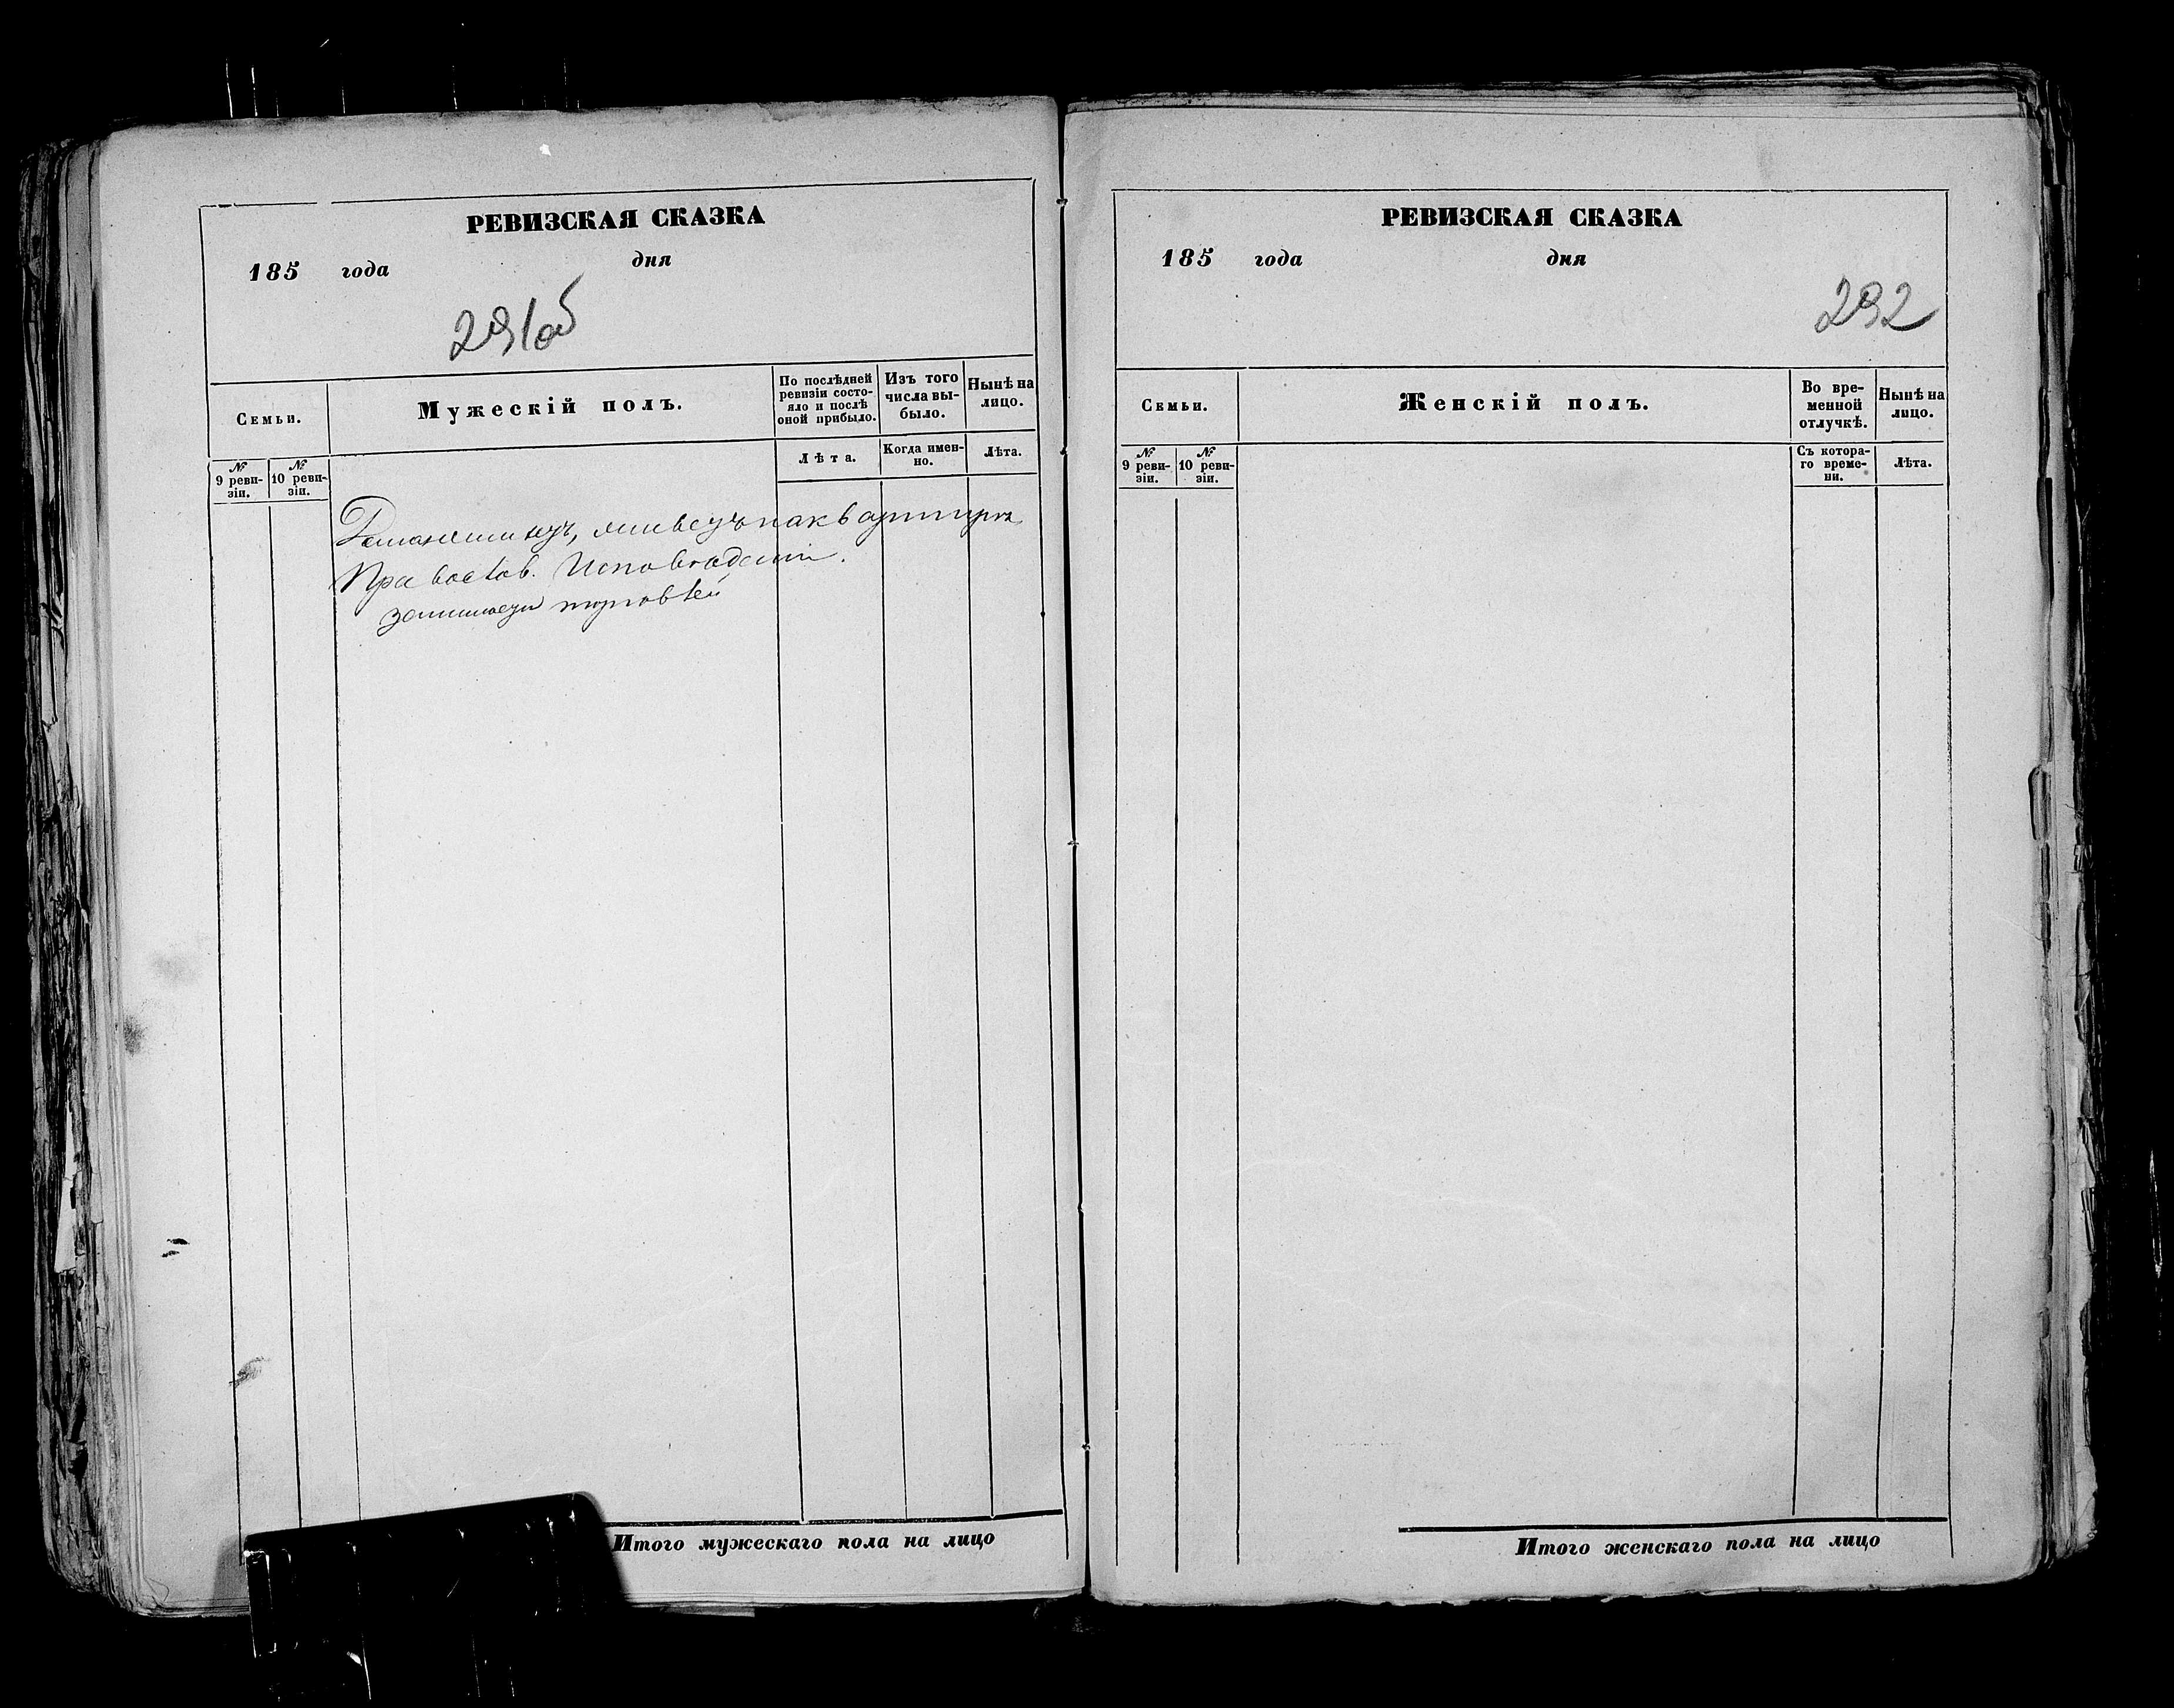 РЕВИЗСКАЯ СКАЗКА
185 года дня
291об
Семьи.
Мужескій полъ.
По послѣдней ревизіи состо-
яло и послѣ
оной прибыло.
Изъ того
числа вы-
было.
Нынѣ на
лицо.
№ 9 реви-
зіи.
№ 10 реви-
зіи.
Лѣта.
Когда имен-
но.
Лѣта.
живетъ на квартире
Православ. Исповеданій.
занимаетъ торговлей
Итого мужескаго пола на лицо
РЕВИЗСКАЯ СКАЗКА
185 года дня
292
Семьи.
Женскій полъ.
Во вре-
менной
отлучкѣ.
Нынѣ на
лицо.
№ 9 реви-
зіи.
№ 10 реви-
зіи.
Съ котора-
го време-
ни.
Лѣта.
Итого женскаго пола на лицо